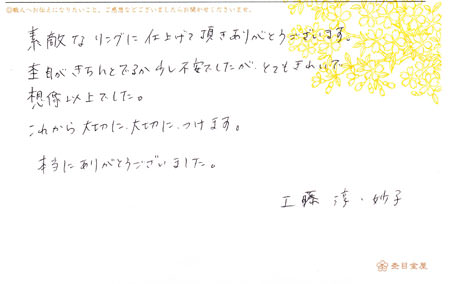 ◎職人へお伝えになりたいこと、ご感想などございましたらお聞かせくださいませ。
素敵な リングに 仕上げて 頂きありがとうございます。
杢目がきちんとでるか少し不安でしたが、とてもきれいで
想像以上でした。
これから 大切に、大切に、つけます。
本当にありがとうございました。
工藤 淳・妙子
杢目金屋